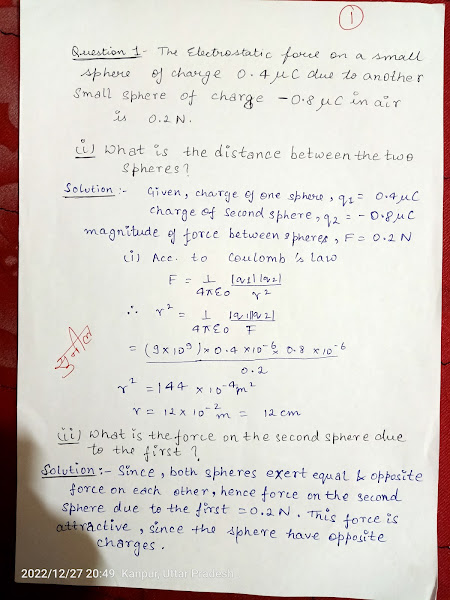 1
Question 1- The Electrostatic force on a small
sphere of charge 0.4 μC due to another
Small sphere of charge -0.8 μC in air
is 0.2 N.
(i) What is the distance between the two
spheres?
Solution:- Given, charge of one sphere, q1 = 0.4 μC
charge of second sphere, q2 = -0.8 μC
magnitude of force between spheres, F = 0.2 N
(i) Acc. to Coulomb's law
F = 1/4πε0 |q1||q2|/r²
∴ r² = 1/4πε0 |q1||q2|/F
= (9×10⁹)×0.4×10⁻⁶×0.8×10⁻⁶
0.2
r² = 144 × 10⁻⁴ m²
r = 12 × 10⁻² m = 12 cm
सुनील
(ii) What is the force on the second sphere due
to the first?
Solution:- Since, both spheres exert equal & opposite
force on each other, hence force on the second
sphere due to the first = 0.2 N. This force is
attractive, since the sphere have opposite
charges.
2022/12/27 20:49 Kanpur, Uttar Pradesh